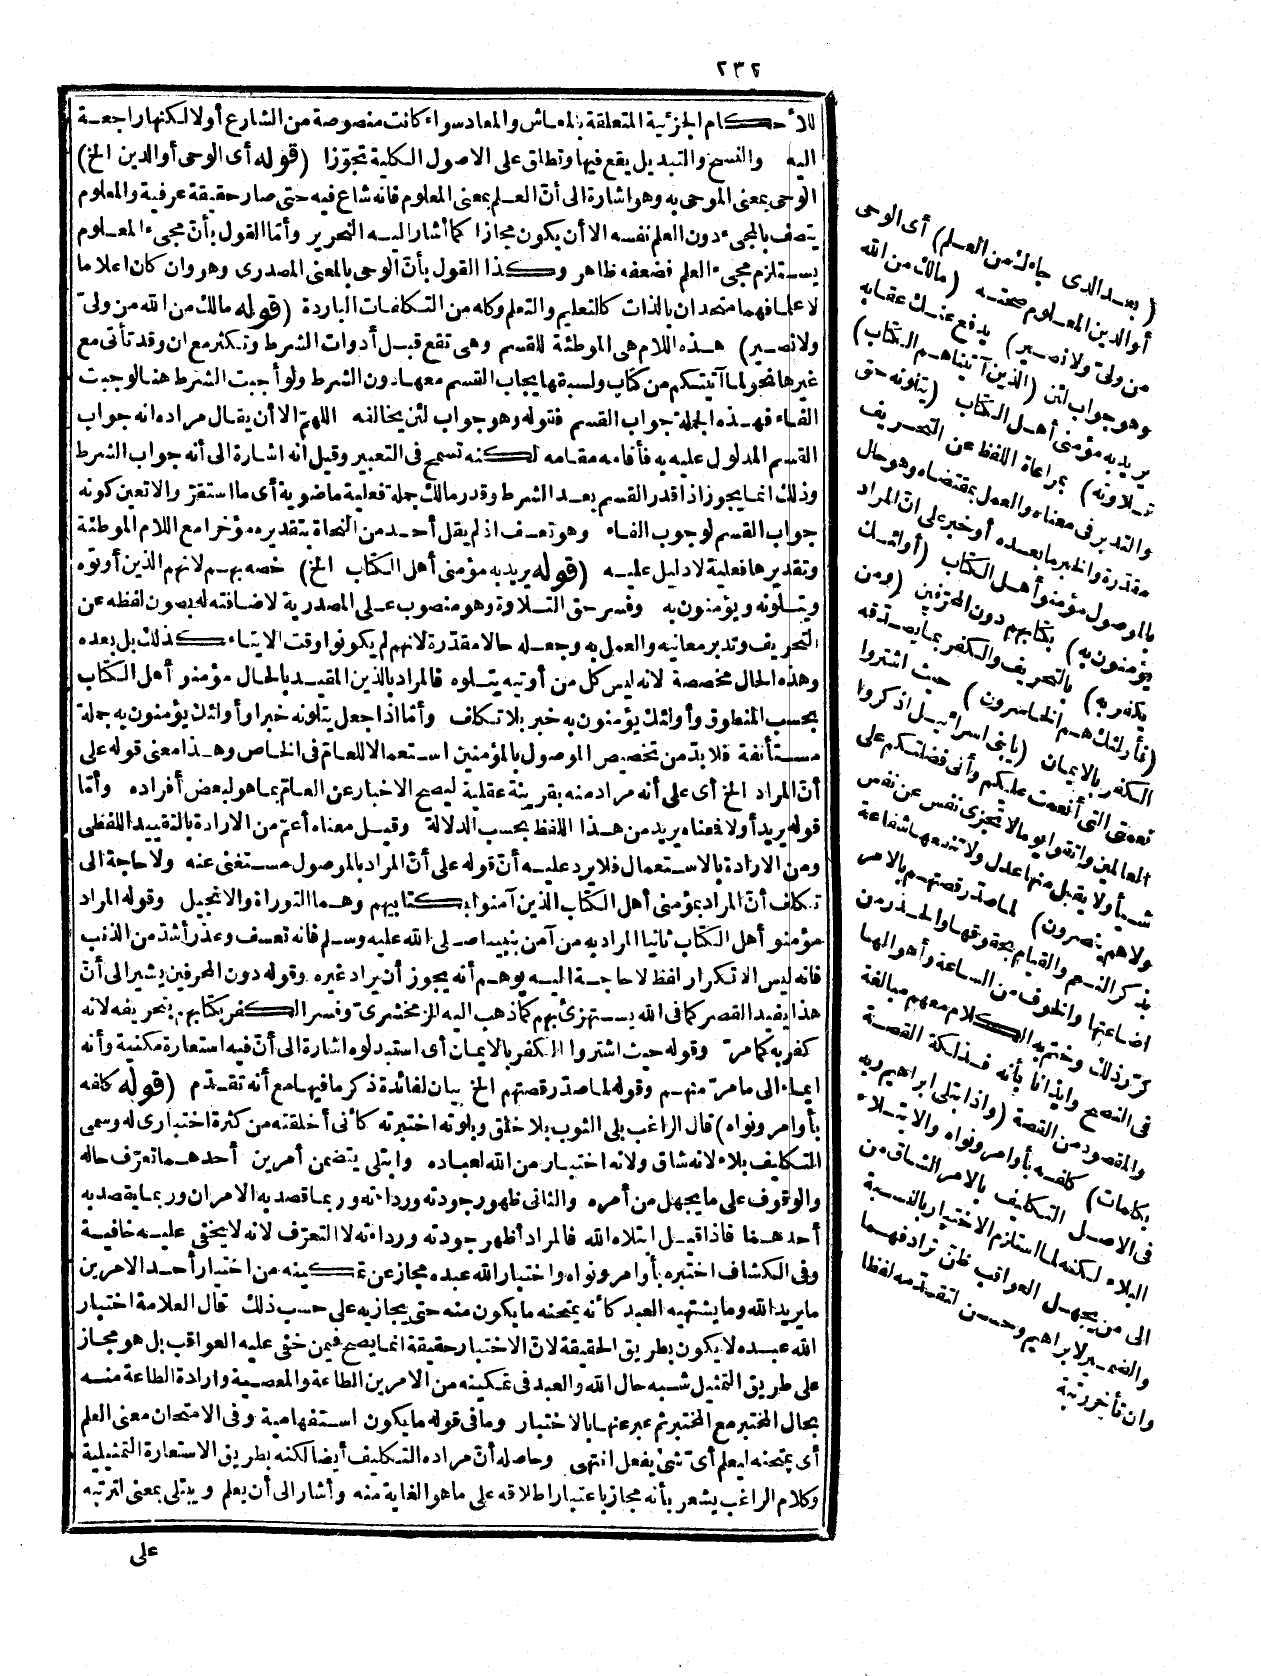 ٢٣٢
للأحكام الجزئية المتعلقة بالمعاش والمعاد سواء كانت منصوصة من الشارع أولا لكنها راجعة
اليه والنسخ والتبديل يقع فيها وتطلق على الاصول الكلية تجوّزا (قوله أى الوحى أو الدين الخ)
الوحى بمعنى الموحى به وهو اشارة الى أنّ العلم بمعنى المعلوم فانه شاع فيه حتى صار حقيقة عرفية والمعلوم
يتصف بالمجىء دون العلم نفسه الا أن يكون مجازا كما أشار اليه التحرير وأمّا القول بأنّ مجىء المعلوم
يستلزم مجىء العلم فضعفه ظاهر وكذا القول بأنّ الوحى بالمعنى المصدرى وهو وان كان اعلاما
لا علما فهما متحدان بالذات كالتعليم والتعلم وكله من التكلفات الباردة (قوله مالك من الله من ولىّ
ولا نصير) هذه اللام هى الموطئة للقسم وهى تقع قبل أدوات الشرط وتكثر مع ان وقد تأتى مع
غيرها نحو لما آتيتكم من كتاب ولسبقها يجاب القسم معها دون الشرط ولو أجيب الشرط هنا لوجبت
الفاء فهذه الجملة جواب القسم فقوله وهو جواب لئن يخالفه اللهمّ الا أن يقال مراده انه جواب
القسم المدلول عليه به فأقامه مقامه لكنه تسمح فى التعبير وقيل انه اشارة الى أنه جواب الشرط
وذلك انما يجوز اذا قدر القسم بعد الشرط وقدر مالك جملة فعلية ماضوية أى ما استقرّ والا تعين كونه
جواب القسم لوجوب الفاء وهو تعسف اذ لم يقل أحد من النحاة بتقديره مؤخرا مع اللام الموطئة
وتقديرها فعلية لا دليل عليه (قوله يريد به مؤمنى أهل الكتاب الخ) خصه بهم لانهم الذين أوتوه
ويتلونه ويؤمنون به وفسر حق التلاوة وهو منصوب على المصدرية لاضافته له بصون لفظه عن
التحريف وتدبر معانيه والعمل به وجعله حالا مقدّرة لانهم لم يكونوا وقت الايتاء كذلك بل بعده
وهذه الحال مخصصة لانه ليس كل من أوتيه يتلوه فالمراد بالذين المقيد بالحال مؤمنو أهل الكتاب
بحسب المنطوق وأولئك يؤمنون به خبر بلا تكلف وأمّا اذا جعل يتلونه خبرا وأولئك يؤمنون به جملة
مستأنفة فلا بدّ من تخصيص الموصول بالمؤمنين استعمالا للعام فى الخاص وهذا معنى قوله على
أنّ المراد الخ أى على أنه مراد منه بقرينة عقلية ليصح الاخبار عن العام بما هو لبعض أفراده وأمّا
قوله يريد أولا فمعناه يريد من هذا اللفظ بحسب الدلالة وقيل معناه أعمّ من الارادة بالتقييد اللفظى
ومن الارادة بالاستعمال فلا يرد عليه أنّ قوله على أنّ المراد بالموصول مستغنى عنه ولا حاجة الى
تكلف أنّ المراد بمؤمنى أهل الكتاب الذين آمنوا بكتابيهم وهما التوراة والانجيل وقوله المراد
مؤمنو أهل الكتاب ثانيا المراد به من آمن بنبينا صلى الله عليه وسلم فانه تعسف وعذر أشدّ من الذنب
فانه ليس الا تكرار لفظ لا حاجة اليه يوهم أنه يجوز أن يراد غيره وقوله دون المحرفين يشير الى أنّ
هذا يفيد القصر كما فى الله يستهزئ بهم كما ذهب اليه الزمخشرىّ وفسر الكفر بكتابهم بتحريفه لانه
كفر به كما مرّ وقوله حيث اشتروا الكفر بالايمان أى استبدلوه اشارة الى أنّ فيه استعارة مكنية وأنه
ايماء الى ما مرّ منهم وقوله لما صدّر قصتهم الخ بيان لفائدة ذكر ما فيها مع أنه تقدّم (قوله كلفه
بأوامر ونواه) قال الراغب بلى الثوب بلا خلق وبلوته اختبرته كأنى أخلقته من كثرة اختبارى له وسمى
التكليف بلاء لانه شاق ولانه اختبار من الله لعباده وابتلى يتضمن أمرين أحدهما تعرّف حاله
والوقوف على ما يجهل من أمره والثانى ظهور جودته ورداءته وربما قصد به الامران وربما يقصد به
أحدهما فاذا قيل ابتلاه الله فالمراد أظهر جودته ورداءته لا التعرّف لانه لا يخفى عليه خافية
وفى الكشاف اختبره بأوامر ونواه واختبار الله عبده مجاز عن تمكينه من اختيار أحد الامرين
ما يريد الله وما يشتهيه العبد كأنه يمتحنه ما يكون منه حتى يجازيه على حسب ذلك قال العلامة اختبار
الله عبده لا يكون بطريق الحقيقة لانّ الاختبار حقيقة انما يصح فيمن خفى عليه العواقب بل هو مجاز
على طريق التمثيل شبه حال الله والعبد فى تمكينه من الامرين الطاعة والمعصية وارادة الطاعة منه
بحال المختبر مع المختبر ثم عبر عنها بالاختبار وما فى قوله ما يكون استفهامية وفى الامتحان معنى العلم
أى يمتحنه ليعلم أىّ شئ يفعل انتهى وحاصله أنّ مراده التكليف أيضا لكنه بطريق الاستعارة التمثيلية
وكلام الراغب يشعر بأنه مجاز باعتبار اطلاقه على ما هو الغاية منه وأشار الى أن يعلم ويبتلى بمعنى لترتبه
على
(بعد الذى جاءك من العلم) أى الوحى
أو الدين المعلوم صحته (مالك من الله
من ولىّ ولا نصير) يدفع عنك عقابه
وهو جواب لئن (الذين آتيناهم الكتاب)
يريد به مؤمنى أهل الكتاب (يتلونه حق
تلاوته) بمراعاة اللفظ عن التحريف
والتدبر فى معناه والعمل بمقتضاه وهو حال
مقدّرة والخبر ما بعده أو خبر على انّ المراد
بالموصول مؤمنو أهل الكتاب (أولئك
يؤمنون به) بكتابهم دون المحرّفين (ومن
يكفر به) بالتحريف والكفر بما يصدّقه
(فأولئك هم الخاسرون) حيث اشتروا
الكفر بالايمان (يا بنى اسرائيل اذكروا
نعمتى التى أنعمت عليكم وأنى فضلتكم على
العالمين واتقوا يوما لا تجزى نفس عن نفس
شيأ ولا يقبل منها عدل ولا تنفعها شفاعة
ولا هم ينصرون) لما صدّر قصتهم بالامر
بذكر النعم والقيام بحقوقها والحذر من
اضاعتها والخوف من الساعة وأهوالها
كرّر ذلك وختم به الكلام معهم مبالغة
فى النصح وايذانا بأنه فذلكة القصة
والمقصود من القصة (واذ ابتلى ابراهيم ربه
بكلمات) كلفه بأوامر ونواه والابتلاء
فى الاصل التكليف بالامر الشاق من
البلاء لكنه لما استلزم الاختبار بالنسبة
الى من يجهل العواقب ظنّ ترادفهما
والضمير لابراهيم وحسن لتقدّمه لفظا
وان تأخر رتبة